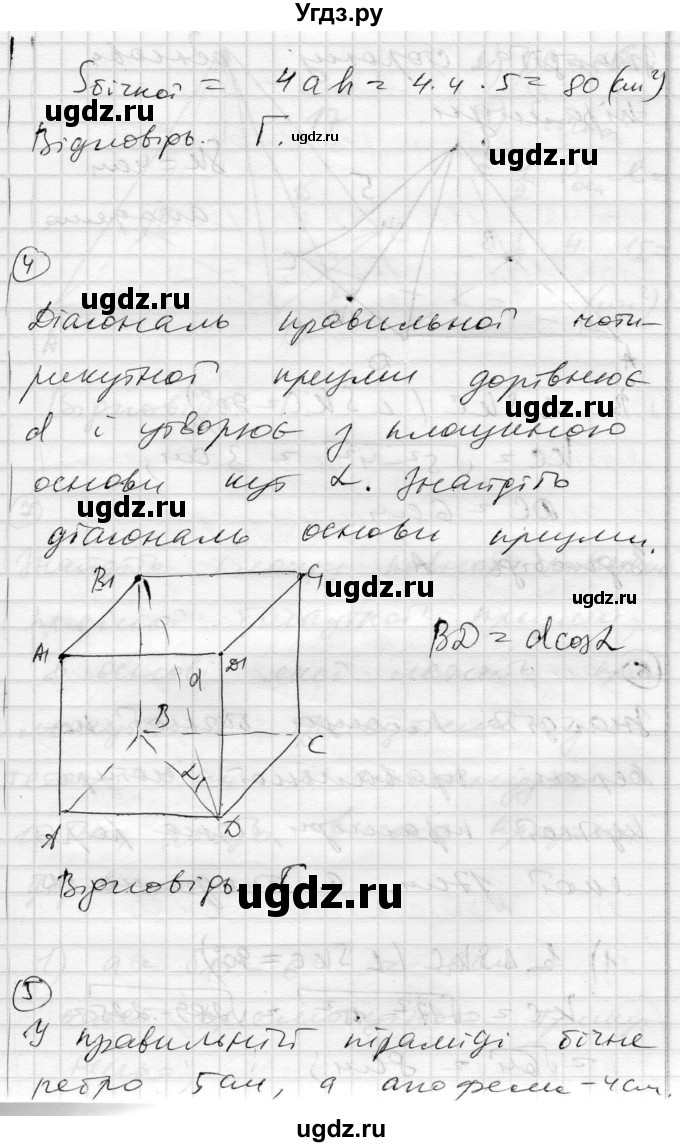 Угдз.ру
Sбічної = 4ah = 4.4.5 = 80 (см²)
Відповідь. Г.
4
Діагональ правильної чоти-
рикутної призми дорівнює
d і утворює з площиною
основи кут α. Знайдіть
діагональ основи призми.
B1 C1
A1 D1
d
BD = dcosα
B
C
α
A D
Відповідь Г
5
У правильній піраміді бічне
ребро 5см, а апофема - 4см.
ugdz.ru
ugdz.ru
ugdz.ru
ugdz.ru
ugdz.ru
ugdz.ru
ugdz.ru
ugdz.ru
ugdz.ru
ugdz.ru
ugdz.ru
ugdz.ru